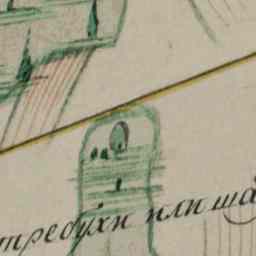 требухи или ша